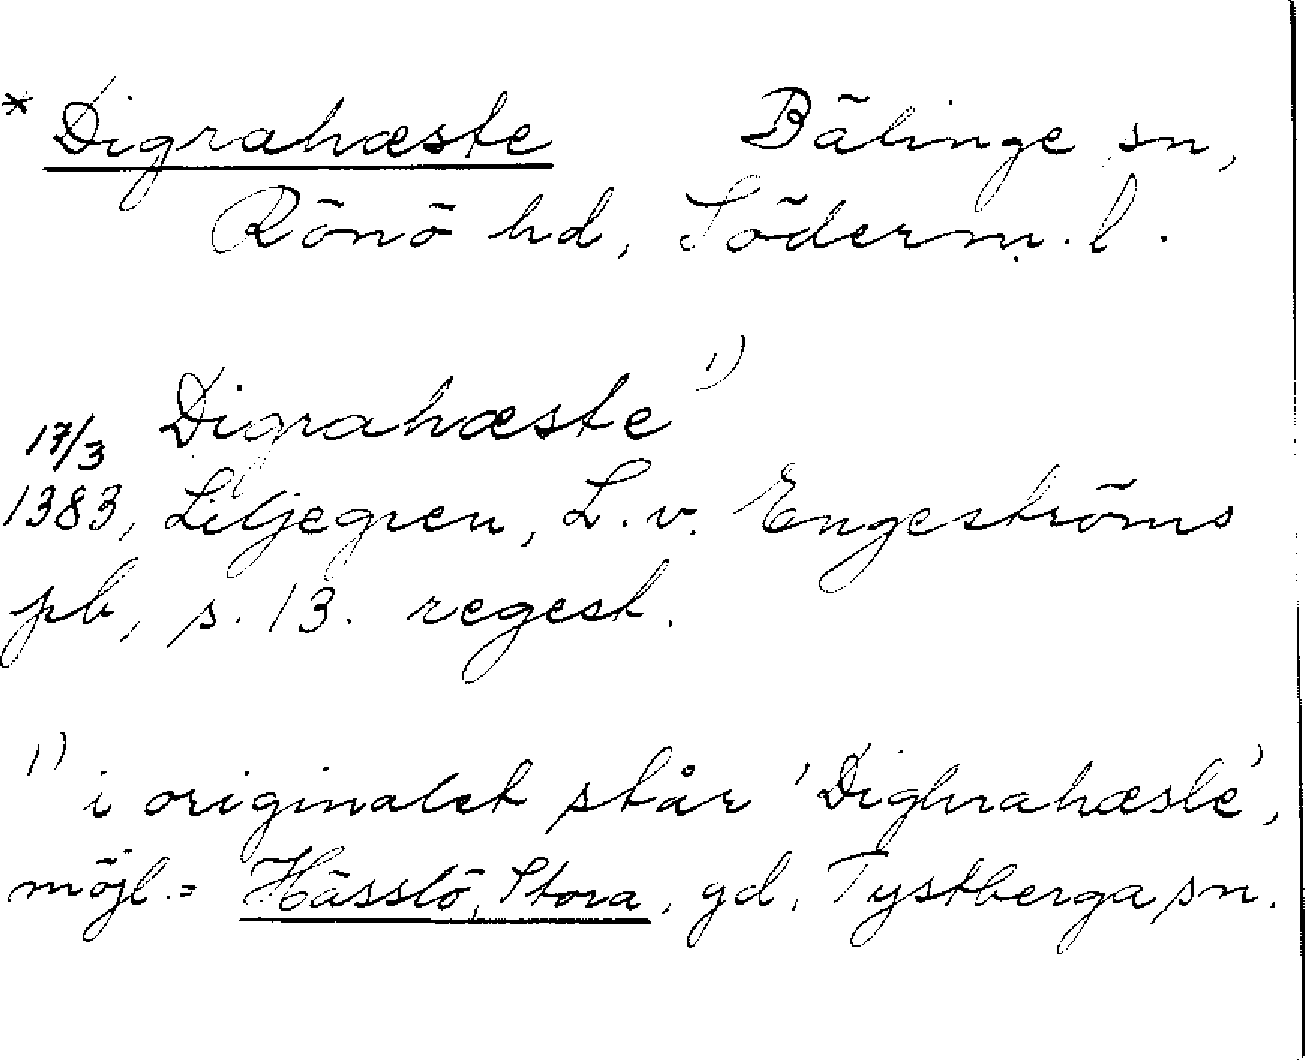 * Digrahæste Bälinge sn,
Rönö hd, Söderm. l.
Digrahæste 1)
17/3
1383, Liljegren, L. v. Engeströms
pb, s. 13. regest.
1) i originalet står 'Dighrahæsle',
möjl. = Hässlö, Stora, gd, Tystberga sn.